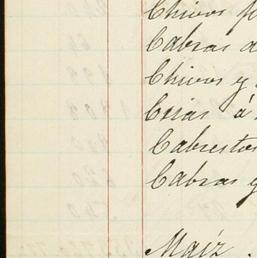 Chivos p
Cabras a
Chivos y
Crias á
Cabrestos
Cabras y
Maíz